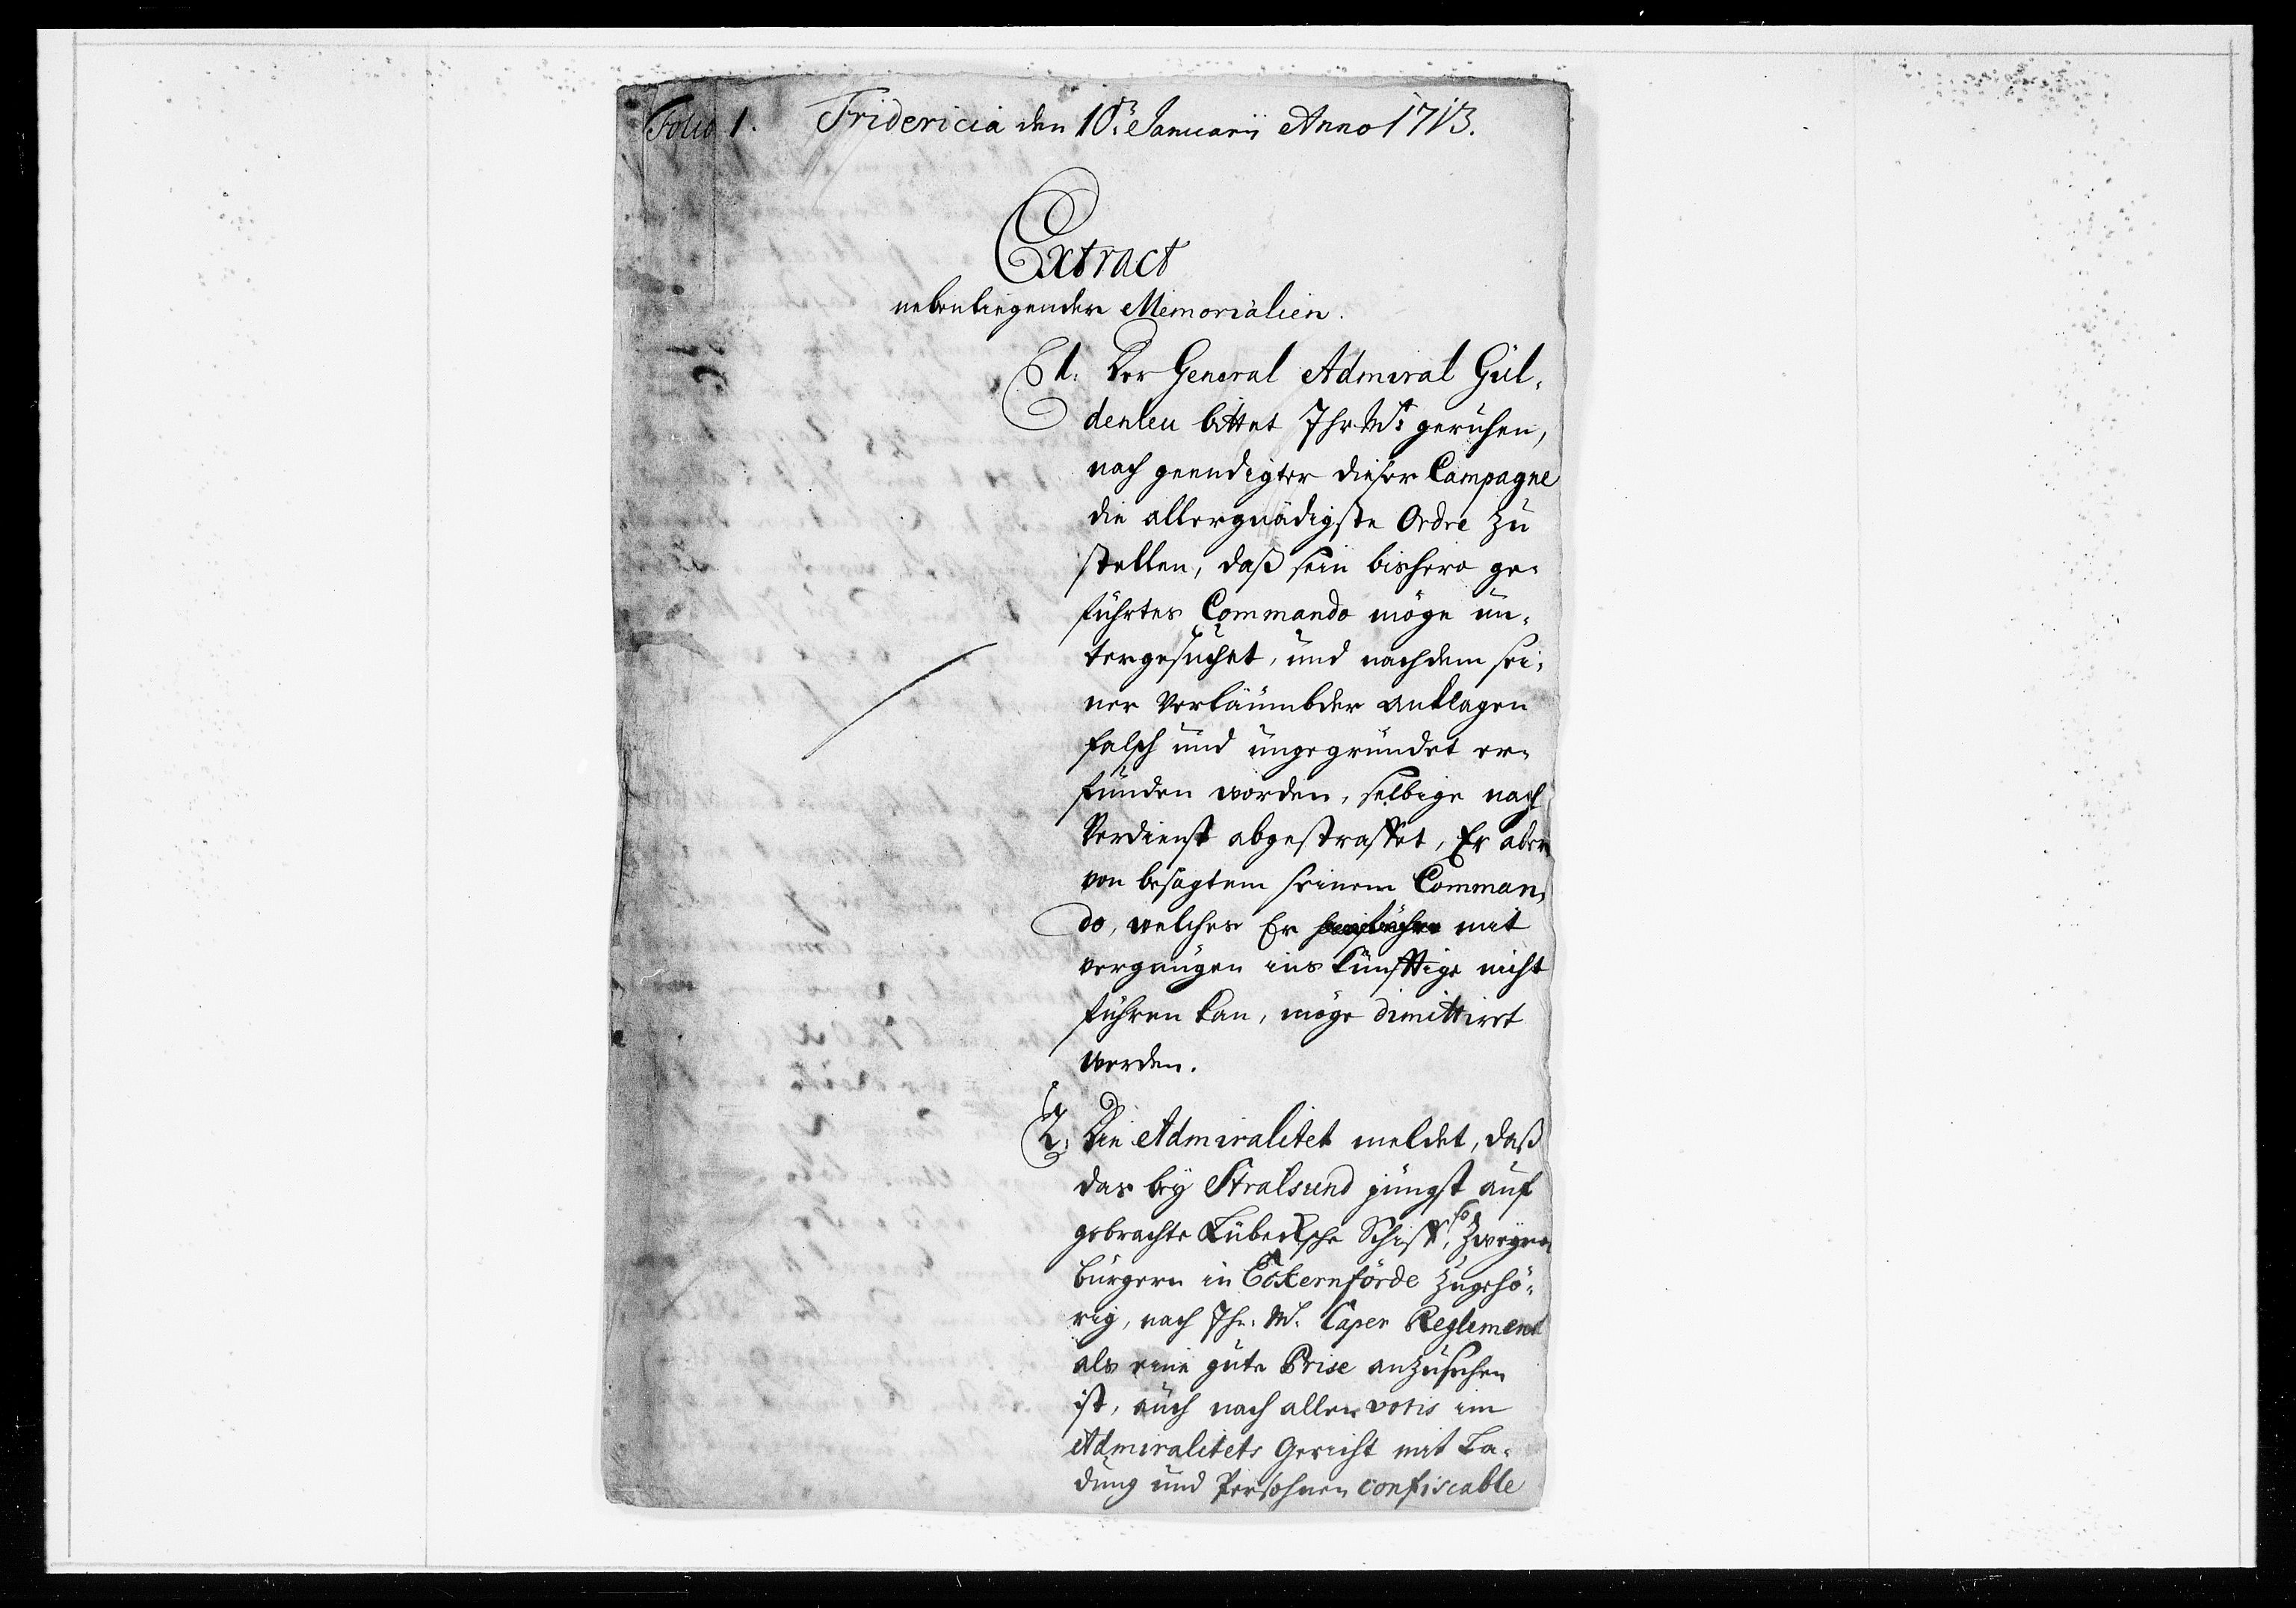 Folio 1. Fridericia den 10ⁿ Januarii Anno 1713.
Extract
nebenliegender Memorialien.
1. Der General Admiral Gül-
denleu bittet Ihr Mt geruhen,
nach geendigter dieser Campagne
die allergnädigste Ordre zu
stellen, daß sein bishero ge-
führtes Commando möge un-
tergesuchet, und nachdem sei-
ner Verläumbder anklagen
falsch und ungegründet er-
funden worden, selbige nach
Verdienst abgestraffet, Er aber
von besagtem seinem Comman-
do, welches Er mit
vergnügen ins künfftige nicht
führen kan, möge dimittirt
werden.
2. Die Admiralitet meldet, daß
das bey Stralsund jüngst auf
gebrachte Lübecksche Schiff, so zweyen
bürgern in Eckernförde zugehö-
rig, nach Ihr. Mt. Caper Reglement
als eine gute Prise anzusehen
ist, auch nach allen votis im
Admiralitets Gericht mit La-
dung und Persohnen confiscable